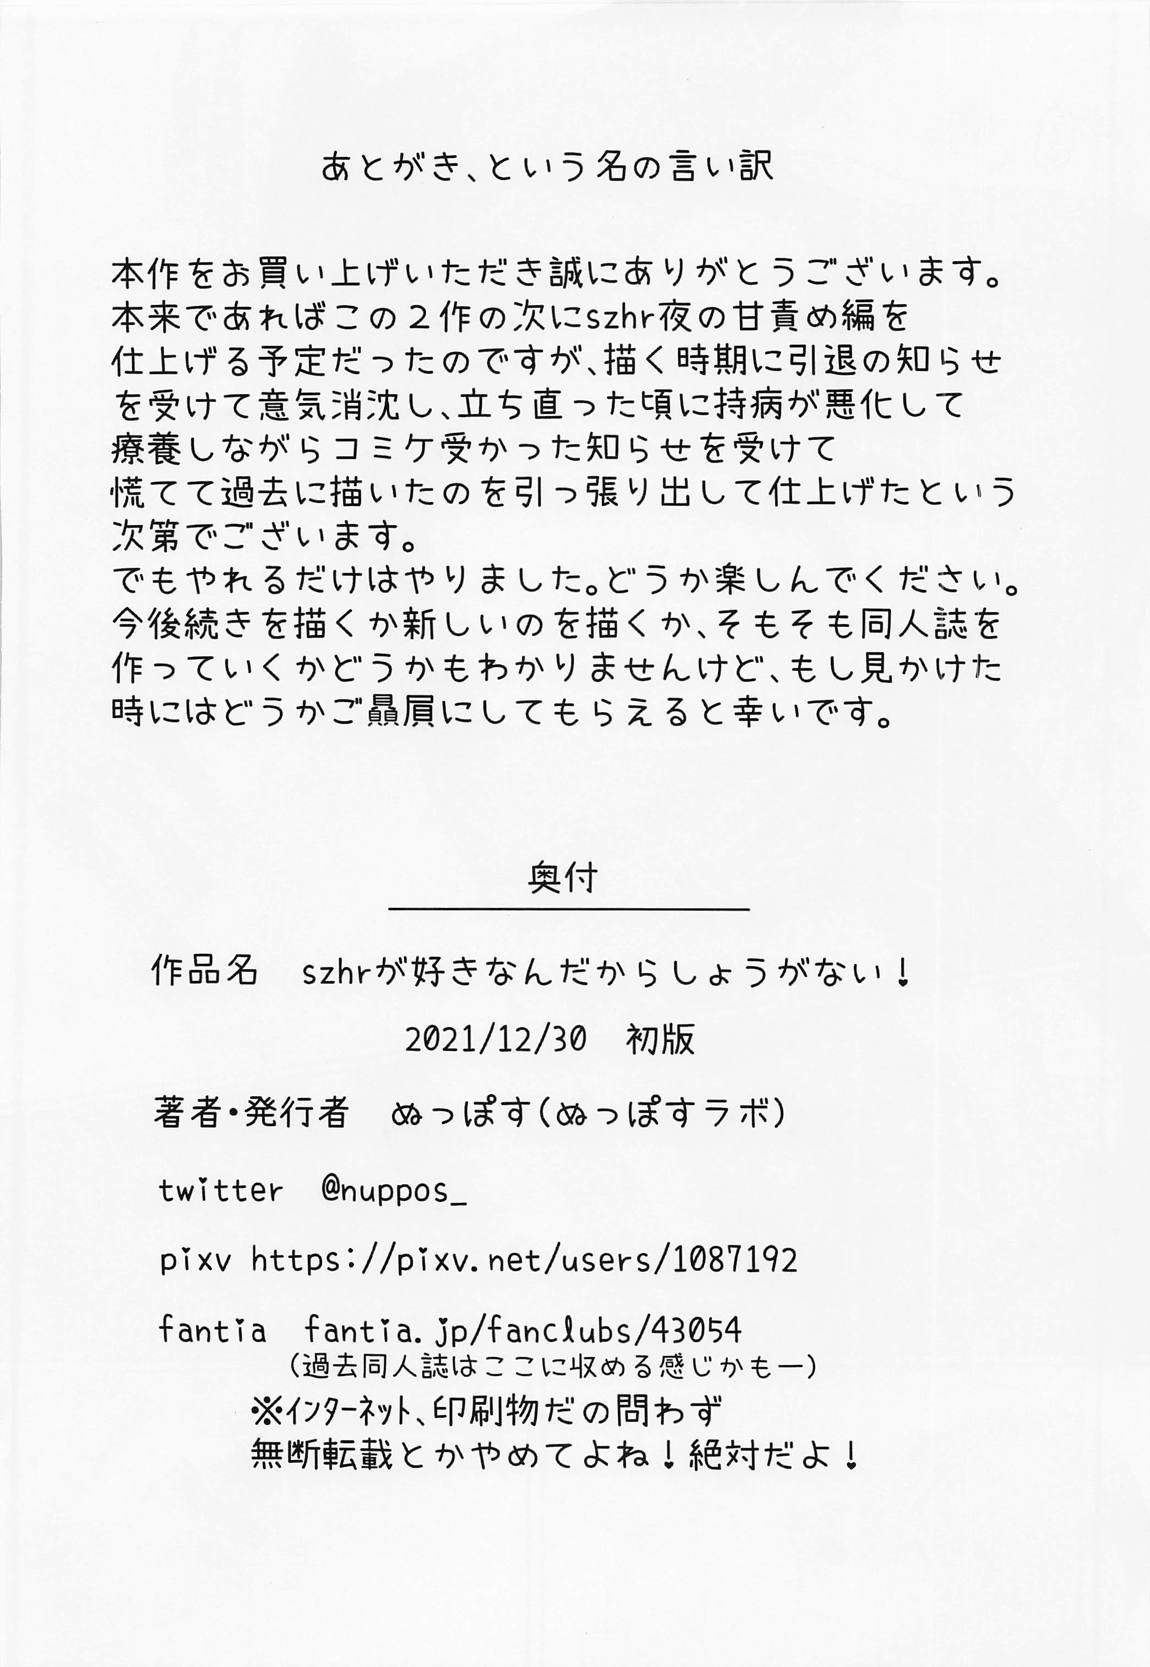 あとがき、という名の言い訳
本作をお買い上げいただき誠にありがとうございます。
本来であればこの２作の次にszhr夜の甘責め編を
仕上げる予定だったのですが、描く時期に引退の知らせ
を受けて意気消沈し、立ち直った頃に持病が悪化して
療養しながらコミケ受かった知らせを受けて
慌てて過去に描いたのを引っ張り出して仕上げたという
次第でございます。
でもやれるだけはやりました。どうか楽しんでください。
今後続きを描くか新しいのを描くか、そもそも同人誌を
作っていくかどうかもわかりませんけど、もし見かけた
時にはどうかご贔屓にしてもらえると幸いです。
奥付
作品名　szhrが好きなんだからしょうがない！
2021/12/30　初版
著者・発行者　ぬっぽす（ぬっぽすラボ）
twitter　@nuppos_
pixv https://pixv.net/users/1087192
fantia　fantia.jp/fanclubs/43054
（過去同人誌はここに収める感じかもー）
※ｲﾝﾀｰﾈｯﾄ、印刷物だの問わず
無断転載とかやめてよね！絶対だよ！